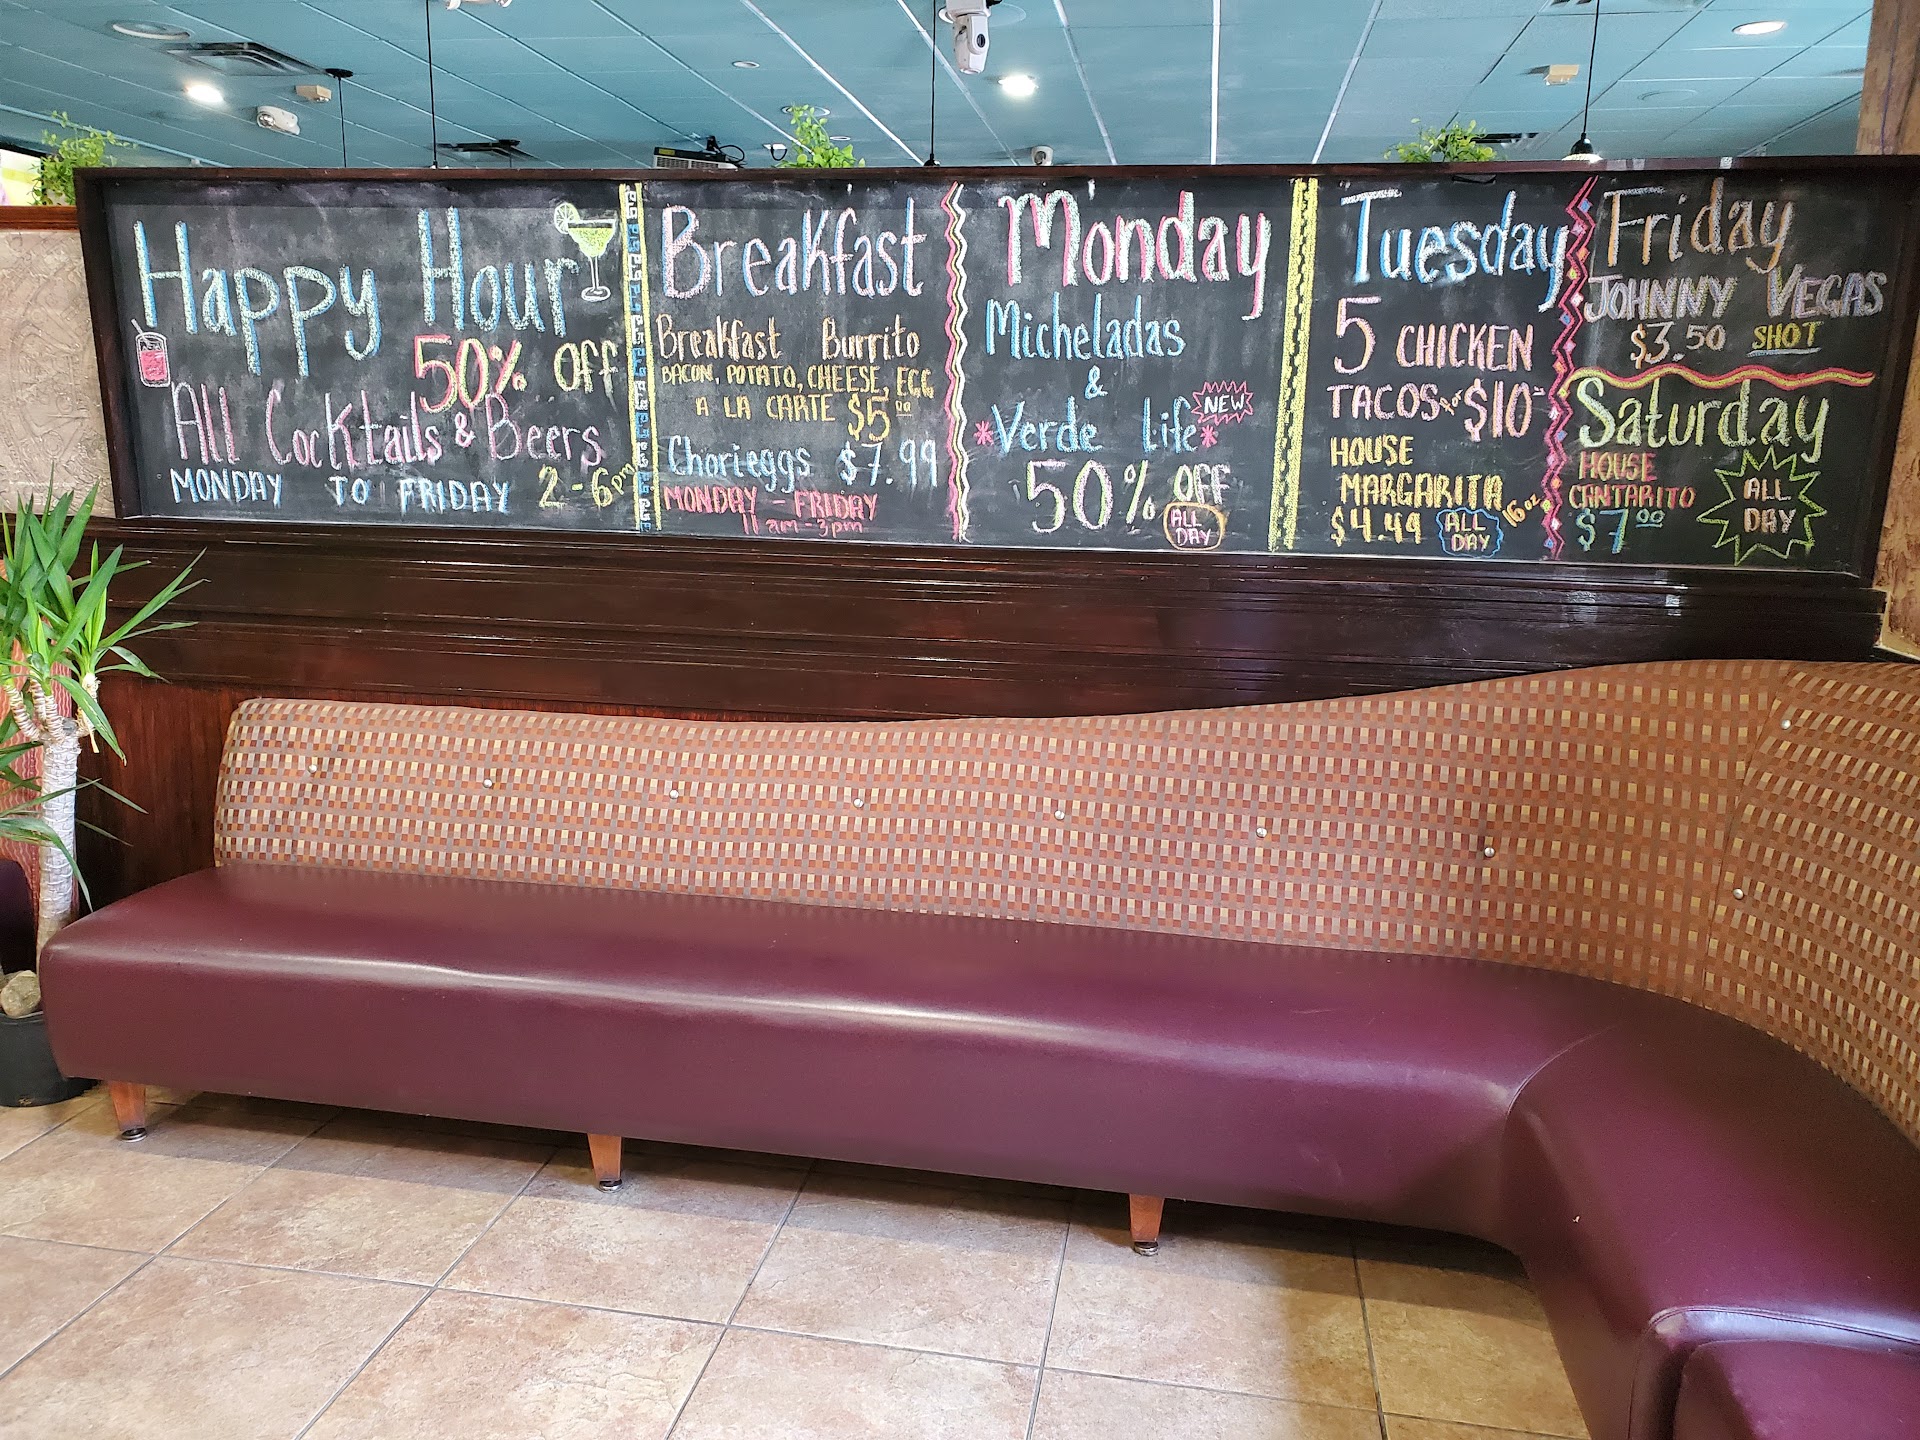 Happy Hour
50% Off
All Cocktails & Beers
MONDAY TO FRIDAY 2-6pm
Breakfast
Breakfast Burrito
BACON, POTATO, CHEESE, EGG
A LA CARTE $5.00
Chorieggs $7.99
MONDAY - FRIDAY
11am-3pm
Monday
Micheladas
&
*Verde Life*
NEW
50% OFF
ALL
DAY
Tuesday
5 CHICKEN
TACOS $10
HOUSE
MARGARITA 16oz
$4.49
ALL
DAY
Friday
JOHNNY VEGAS
$3.50 SHOT
Saturday
HOUSE
CANTARITO
$7.00
ALL
DAY